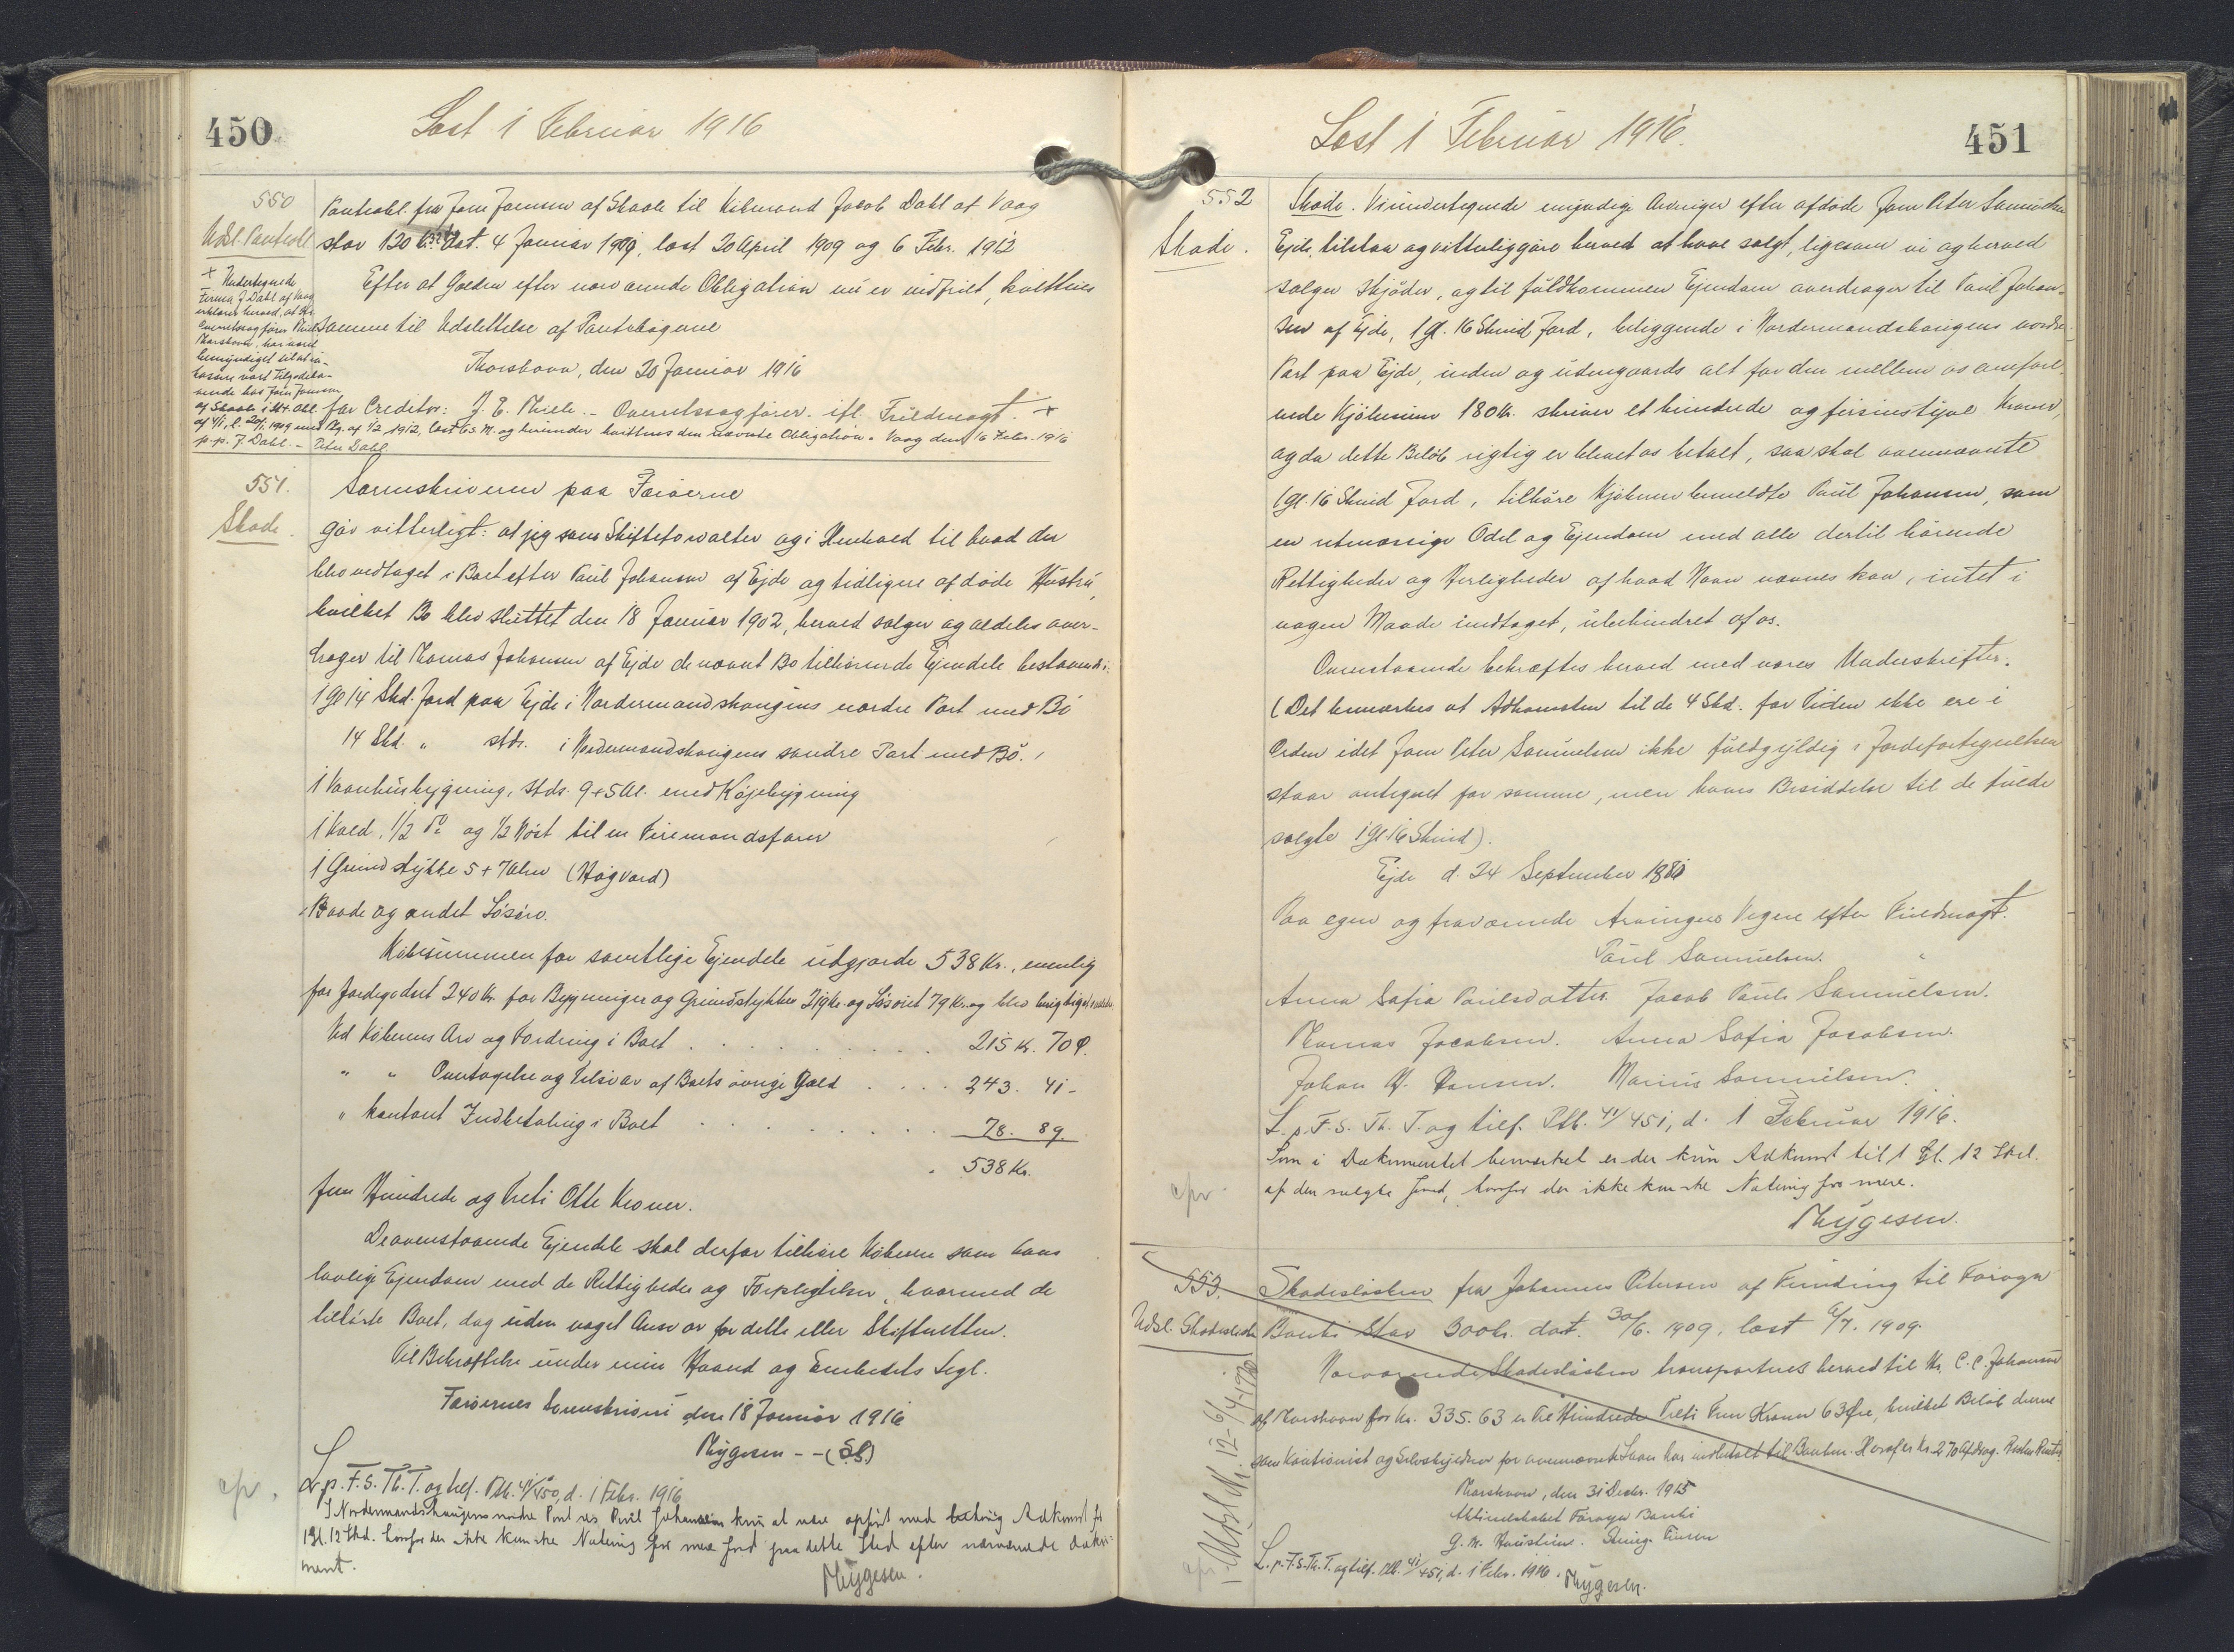 450
Læst 1 Februar 1916
550
Udsl. Pantobl.
Pantobl. fra Joen Joensen af Skaale til Kjbmand Jacob Dahl af Vaag
stor 120 Kr. dat. 4 Januar 1909, læst 20 April 1909 og 6 Febr. 1912
Efter at Gælden efter nærværende Obligation nu er indfriet, kvitteres
samme til Udslettelse af Pantebøgerne
Thorshavn, den 20 Januar 1916
for Creditor: J. E. Thiele. - Overretssagfører. ifl. Fuldmagt. +
+ Undertegnede
Firma J Dahl af Vaag
erklærer herved, at Hr.
Overretssagfører Thiele
Thorshavn, har været
bemyndiget til at ind-
kassere vort Tilgodeha-
vende hos Joen Joensen
af Skaale i Flg. Obl.
af 4/1, l. 20/4 1909 med Påg. af 1/2 1912, læst 6. s. M. og herunder kvitteres den nævnte Obligation. Vaag den 16 Febr. 1916
p.p. J. Dahl. - Peter Dahl.
551.
Skøde.
Sorenskriveren paa Færøerne
gør vitterligt: at jeg som Skifteforvalter og i Henhold til hvad der
blev vedtaget i Boet efter Poul Johansen af Ejde og tidligere afdøde Hustru,
hvilket Bo blev sluttet den 18 Januar 1902, herved sælger og aldeles over-
drager til Thomas Johansen af Ejde de nævnt Bo tilhørende Ejendele bestaaende i:
1 Gl 14 Skd. Jord paa Ejde i Nordermandshougens nordre Part med Bø
14 Skd. " stds. i Nordermandshougens søndre Part med Bø.
1 Vaanhusbygning, stds. 9 x 5 Al. med Køjebygning
1 Kæld, 1/2 do og 1/2 Nøst til en Firemandsfarer
1 Grundstykke 5 + 7 Alen (Høgvard)
Baade og andet Løsøre.
Købesummen for samtlige Ejendele udgjorde 538 Kr., nemlig
for Jordegodset 240 Kr. for Bygninger og Grundstykket 219 Kr. og Løsøret 79 Kr. og blev
Ved Køberens Arv og Fordring i Boet . . . . 215 Kr. 70 Ø.
" " Overtagelse og Tilsvar af Boets øvrige Gæld . . . . 243. 41 -
" kontant Indbetaling i Boet . . . . 78. 89
538 Kr.
fem Hundrede og Treti Otte Kroner.
De ovenstaaende Ejendele skal derfor tilhøre Køberen som hans
lovlige Ejendom med de Rettigheder og Forpligtelser, hvormed de
tilhørte Boet, dog uden noget Ansvar for dette eller Skifteretten.
Til Bekræftelse under min Haand og Embedets Segl.
Færøernes Sorenskriveri den 18 Januar 1916
Mygesen - - (S.S.)
cfr.
L. p. F. S. Th. T. og tilf. Ptb. 41/450, d. 1 Febr. 1916
I Nordermandshaugens nordre Part ses Poul Johansen kun at være opført med Adkomst for
1 Gl. 12 Skd. hvorfor der ikke kan ske Notering for mere Jord paa dette Sted efter nærværende doku-
ment.
Mygesen.
Læst 1 Februar 1916.
451
552
Skøde.
Skøde. Vi undertegnede myndige Arvinger efter afdøde Joen Peter Samuelsen
Ejde, tilstaa og vitterliggøre herved at have solgt, ligesom vi og herved
sælger skjøder, og til fuldkommen Ejendom overdrager til Poul Johan-
sen af Ejde, 1 gl. 16 Skind Jord, beliggende i Nordermandshougens nordre
Part paa Ejde, inden og udengaards alt for den mellem os omfore-
nede Kjøbesum 180 Kr. skriver et hundrede og firsinstyve Kroner,
og da dette Beløb rigtig er blevet os betalt, saa skal ovennævnte
1 gl. 16 Skind Jord, tilhøre Kjøberen bemeldte Poul Johansen, som
en retmæssige Odel og Ejendom med alle dertil hørende
Rettigheder og Herligheder af hvad Navn nævnes kan, intet i
nogen Maade undtaget, ubehindret af os.
Ovenstaaende bekræftes herved med vores Underskrifter.
(Det bemærkes at Adkomsten til de 4 Skd. for Tiden ikke ere i
Orden idet Joen Peter Samuelsen ikke fuldgyldig i Jordefortegnelsen
staar antegnet for samme, men hans Besiddelse til de fulde
solgte 1 gl 16 Skind).
Ejde d. 24 September 1881
Paa egen og fraværende Arvingers Vegne efter Fuldmagt.
Poul Samuelsen.
Anna Sofia Poulsdatter. Jacob Pauli Samuelsen.
Thomas Jacobsen. Anna Sofia Jacobsen.
Johan H. Hansen. Marius Samuelsen.
L. p. F. S. Th. T. og tilf. Ptb. 41/451, d. 1 Februar 1916.
Som i Dokumentet bemærket er der kun Adkomst til 1 Gl. 12 Skd.
af den solgte Jord, hvorfor der ikke kan ske Notering for mere.
cfr.
Mygesen.
553.
Udsl. Skadesløsbr
Skadesløsbrev fra Johannes Petersen af Funding til Førøya
Banki Stor 300 Kr. dat. 30/6. 1909. læst 6/7. 1909.
Nærværende Skadesløsbrev transporteres herved til Hr. C. C. Johansen
af Thorshavn for Kr. 335.63 er Tre Hundrede Treti Fem Kroner 63 Øre, hvilket Beløb denne
som Kautionist og Selvskyldner for ovennævnte Laan har indbetalt til Banken. Heraf er Kr. 270 Afdrag. Resten Renter.
Thorshavn, den 31 Decbr. 1915
Aktieselskabet Førøya Banki
L. p. F. S. Th. T. og tilf. Ptb. 41/451, d. 1 Febr. 1916.
Mygesen.